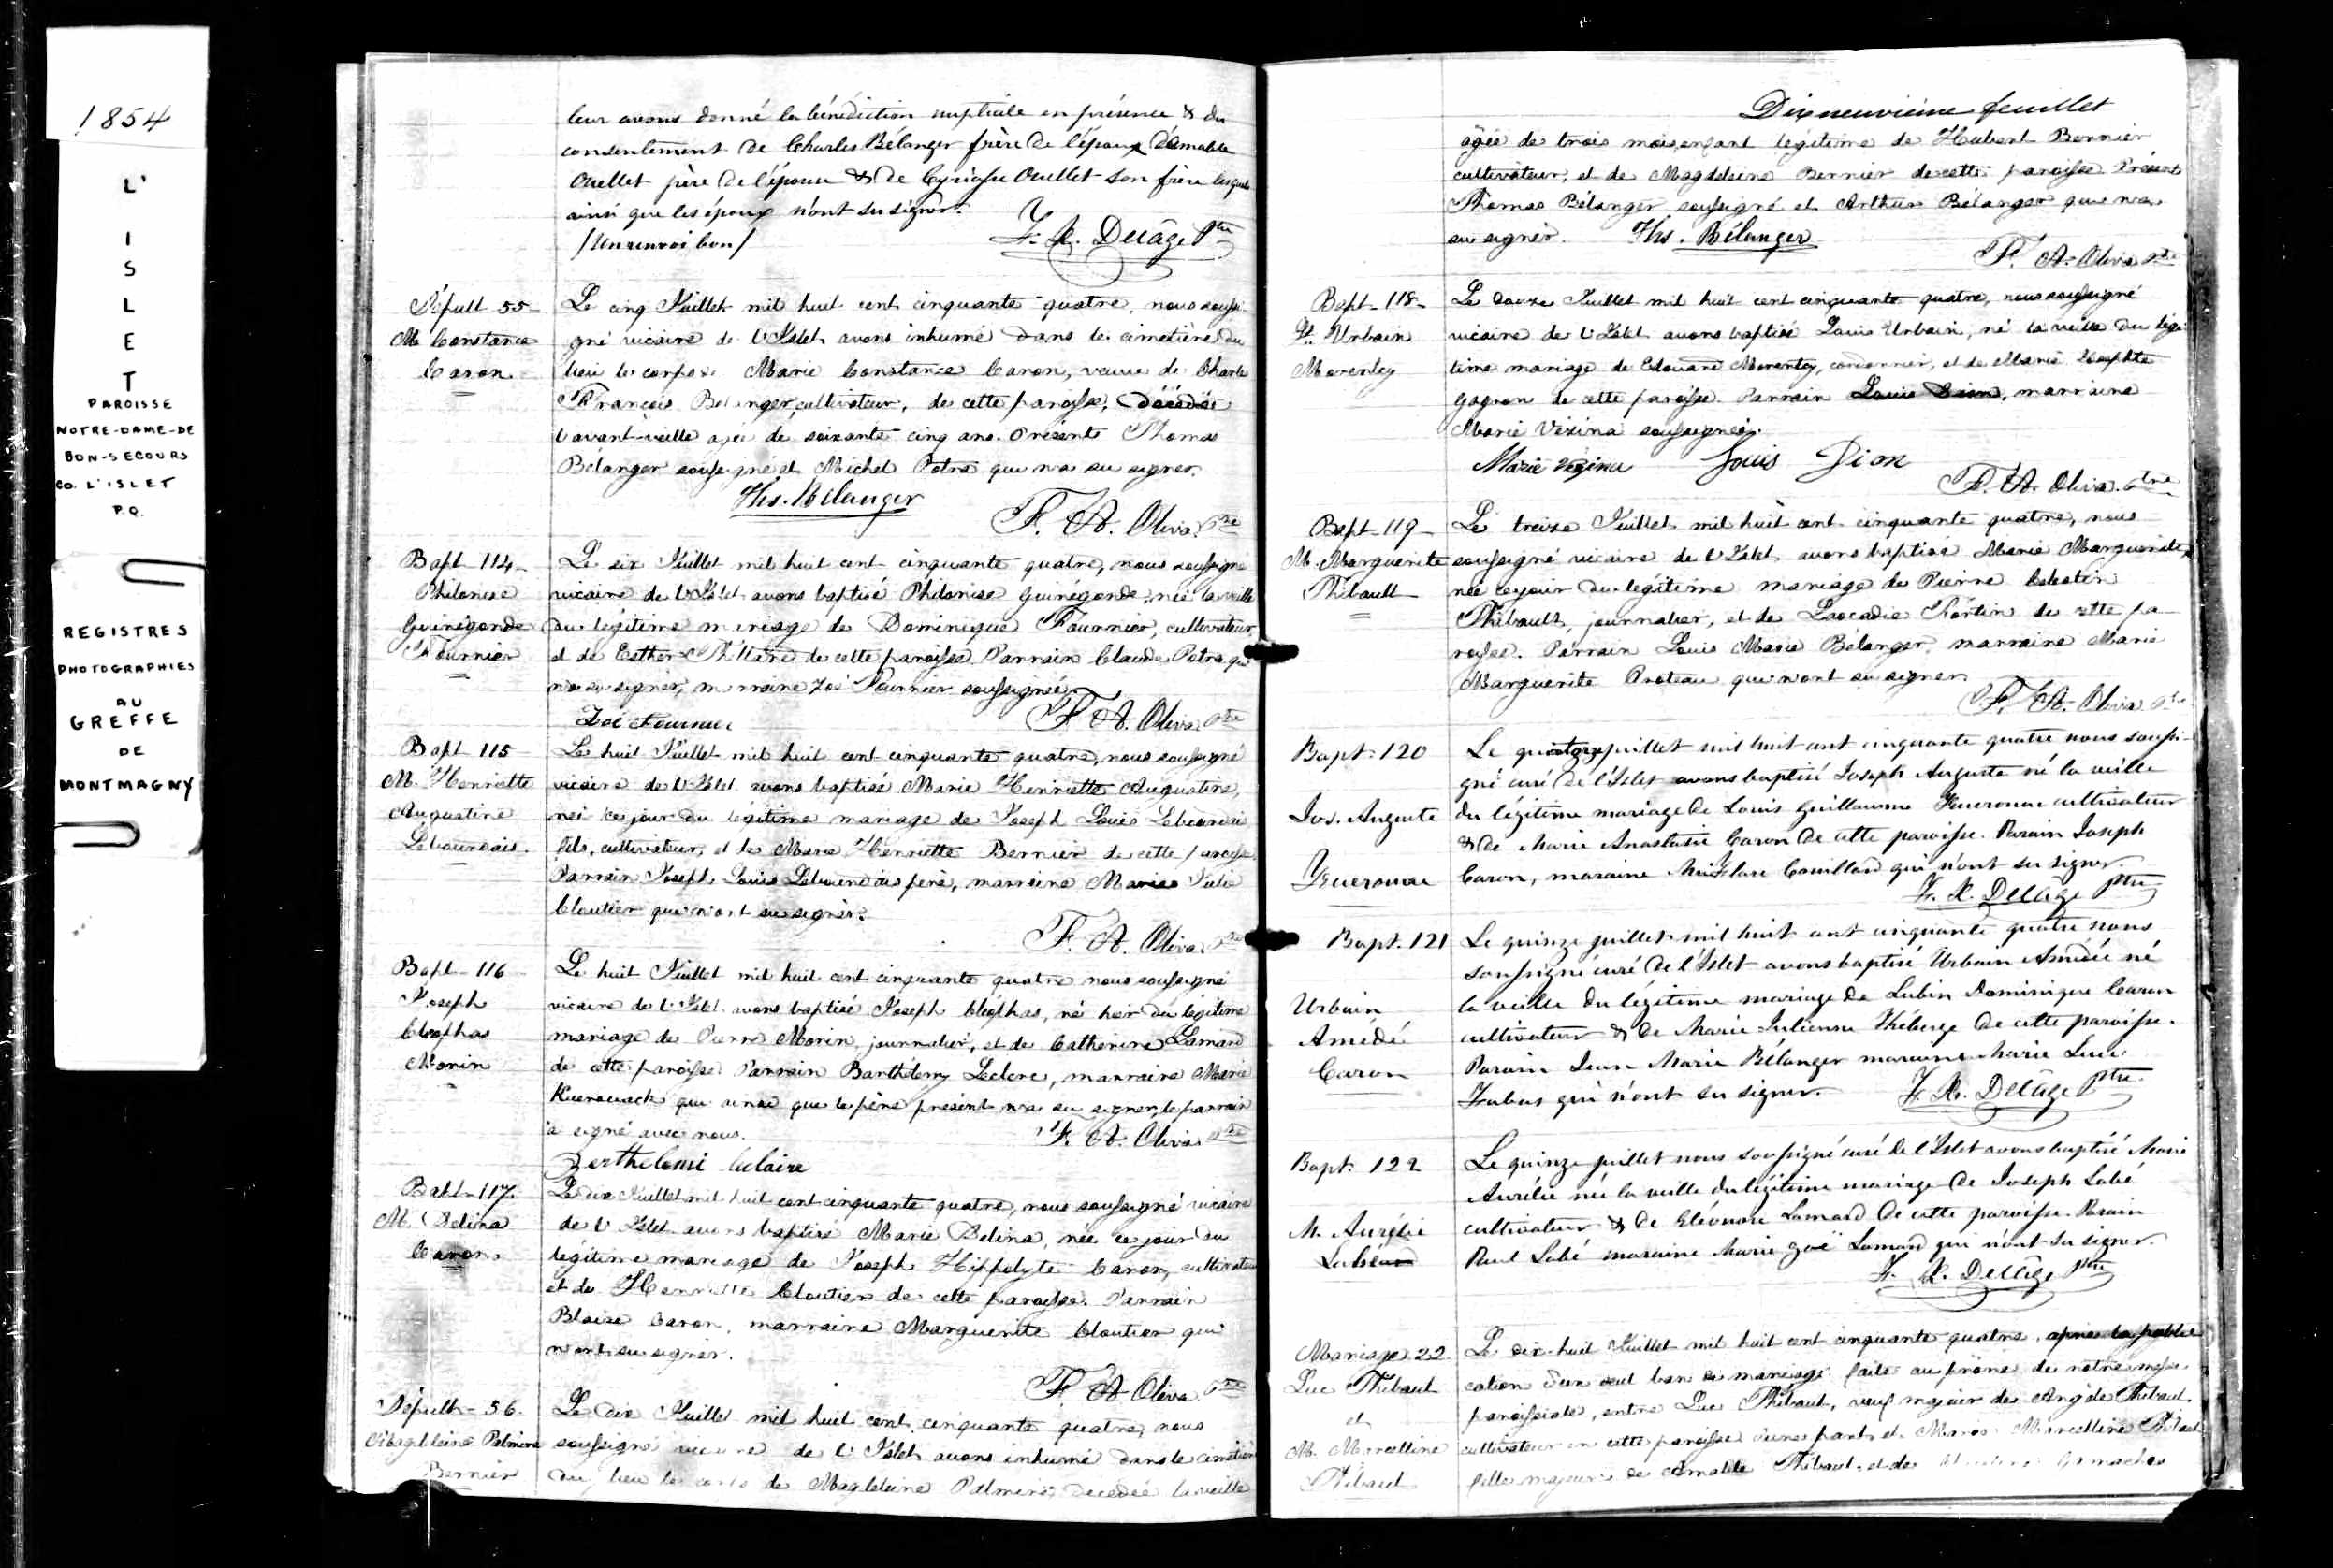 1854
L'
I
S
L
E
T
PAROISSE
NOTRE-DAME-DE
BON-SECOURS
CO. L'ISLET
P.Q.
REGISTRES
PHOTOGRAPHIES
AU
GREFFE
DE
MONTMAGNY
leur avons donné la bénédiction nuptiale en présence & du
consentement de Charles Bélanger frère de l'époux d'Amable
Ouellet père de l'épouse & de Cyriasse Ouellet son frère lesquels
ainsi que les époux n'ont su signer.
/Un renvoi bon/
F. X. Delâge Ptre
Sépult 55
M. Constance
Caron
Le cinq Juillet mil huit cent cinquante quatre, nous soussi-
gné vicaire de l'Islet avons inhumé dans le cimetière du
lieu le corps de Marie Constance Caron, veuve de Charles
François Bélanger, cultivateur, de cette paroisse, décédée
l'avant-veille agée de soixante cinq ans. Présents Thomas
Bélanger soussigné et Michel Potra qui n'a su signer.
Ths. Bélanger
F. A. Oliva Ptre
Bapt 114
Philonise
Guinégonde
Fournier
Le six Juillet mil huit cent cinquante quatre, nous soussigné
vicaire de l'Islet avons baptisé Philonise Guinégonde, née la veille
du légitime mariage de Dominique Fournier, cultivateur,
et de Esther de cette paroisse. Parrain Claude Potra qui
n'a su signer, marraine Zoé Fournier soussignée.
Zoé Fournier
F. A. Oliva Ptre
Bapt 115
M. Henriette
Augustine
Lebourdais.
Le huit Juillet mil huit cent cinquante quatre, nous soussigné
vicaire de l'Islet avons baptisé Marie Henriette Augustine,
née ce jour du légitime mariage de Joseph Louis Lebourdais
fils, cultivateur, et de Marie Henriette Bernier de cette paroisse
Parrain Joseph Louis Lebourdais père, marraine Marie Julie
Cloutier qui n'ont su signer.
F. A. Oliva Ptre
Bapt 116
Joseph
Cléophas
Morin
Le huit Juillet mil huit cent cinquante quatre nous soussigné
vicaire de l'Islet avons baptisé Joseph Cléophas, né hier du légitime
mariage de Pierre Morin, journalier, et de Catherine Lamard
de cette paroisse Parrain Barthélemy Leclerc, marraine Marie
Kuerouack qui ainsi que le père présent n'a su signer, le parrain
a signé avec nous.
F. A. Oliva Ptre
Berthelemi leclaire
Bapt 117.
M. Delina
Caron.
Le dix Juillet mil huit cent cinquante quatre, nous soussigné vicaire
de l'Islet avons baptisé Marie Delina, née ce jour du
légitime mariage de Joseph Hippolyte Caron, cultivateur
et de Henriette Cloutier de cette paroisse. Parrain
Blaise Caron, marraine Marguerite Cloutier qui
n'ont su signer.
F. A. Oliva Ptre
Sépult - 56.
Magdeleine Palmire
Bernier
Le dix Juillet mil huit cent cinquante quatre, nous
soussigné vicaire de l'Islet avons inhumé dans le cimetière
du lieu le corps de Magdeleine Palmire décédée la veille
Dixneuvième feuillet
âgée de trois mois, enfant légitime de Hubert Bernier
cultivateur, et de Magdeleine Bernier de cette paroisse Présents
Thomas Bélanger soussigné et Arthur Bélanger qui n'a
su signer. Ths. Bélanger
F. A. Oliva Ptre
Bapt 118
Ls. Urbain
Morency
Le douze Juillet mil huit cent cinquante quatre, nous soussigné
vicaire de l'Islet avons baptisé Louis Urbain, né la veille du légi-
time mariage de Edouard Morency, cordonnier, et de Marie
Gagnon de cette paroisse. Parrain Louis Dion, marraine
Marie Vézina soussignés.
Marie Vézina Louis Dion
F. A. Oliva Ptre
Bapt 119
M. Marguerite
Thibault
Le treize Juillet mil huit cent cinquante quatre, nous
soussigné vicaire de l'Islet avons baptisé Marie Marguerite,
née ce jour du légitime mariage de Pierre Célestin
Thibault, journalier, et de Léocadie Fortin de cette pa-
roisse. Parrain Louis Marie Bélanger, marraine Marie
Marguerite Proteau qui n'ont su signer.
F. A. Oliva Ptre
Bapt. 120
Jos. Auguste
Yuerouac
Le quatorze juillet mil huit cent cinquante quatre nous soussi-
gné curé de l'Islet avons baptisé Joseph Auguste né la veille
du légitime mariage de Louis Guillaume Yuerouac cultivateur
& de Marie Anastasie Caron de cette paroisse. Parain Joseph
Caron, maraine Couillard qui n'ont su signer.
F. X. Delâge Ptre
Bapt. 121
Urbain
Amédé
Caron
Le quinze juillet mil huit cent cinquante quatre nous
soussigné curé de l'Islet avons baptisé Urbain Amédée né
la veille du légitime mariage de Lubin Dominique Caron
cultivateur & de Marie Julienne Théberge de cette paroisse.
Parain Jean Marie Bélanger maraine Marie Luce
qui n'ont su signer. F. X. Delâge Ptre
Bapt. 122
M. Aurélie
Labé
Le quinze juillet nous soussigné curé de l'Islet avons baptisé Marie
Aurélie née la veille du légitime mariage de Joseph Labé
cultivateur & de Eléonore Lamard de cette paroisse. Parain
Paul Labé maraine Marie Zoé Lamard qui n'ont su signer.
F. X. Delâge Ptre
Mariage 22
Luc Thibaut
et
M. Marcelline
Thibaut
Le dix-huit Juillet mil huit cent cinquante quatre, après la publi-
cation d'un seul ban de mariage faite au prône de notre messe
paroissiale, entre Luc Thibaut, veuf majeur de Angèle Thibaut
cultivateur en cette paroisse d'une part, et Marie Marcelline Thibaut
fille majeure de Amable Thibaut et de Gamache